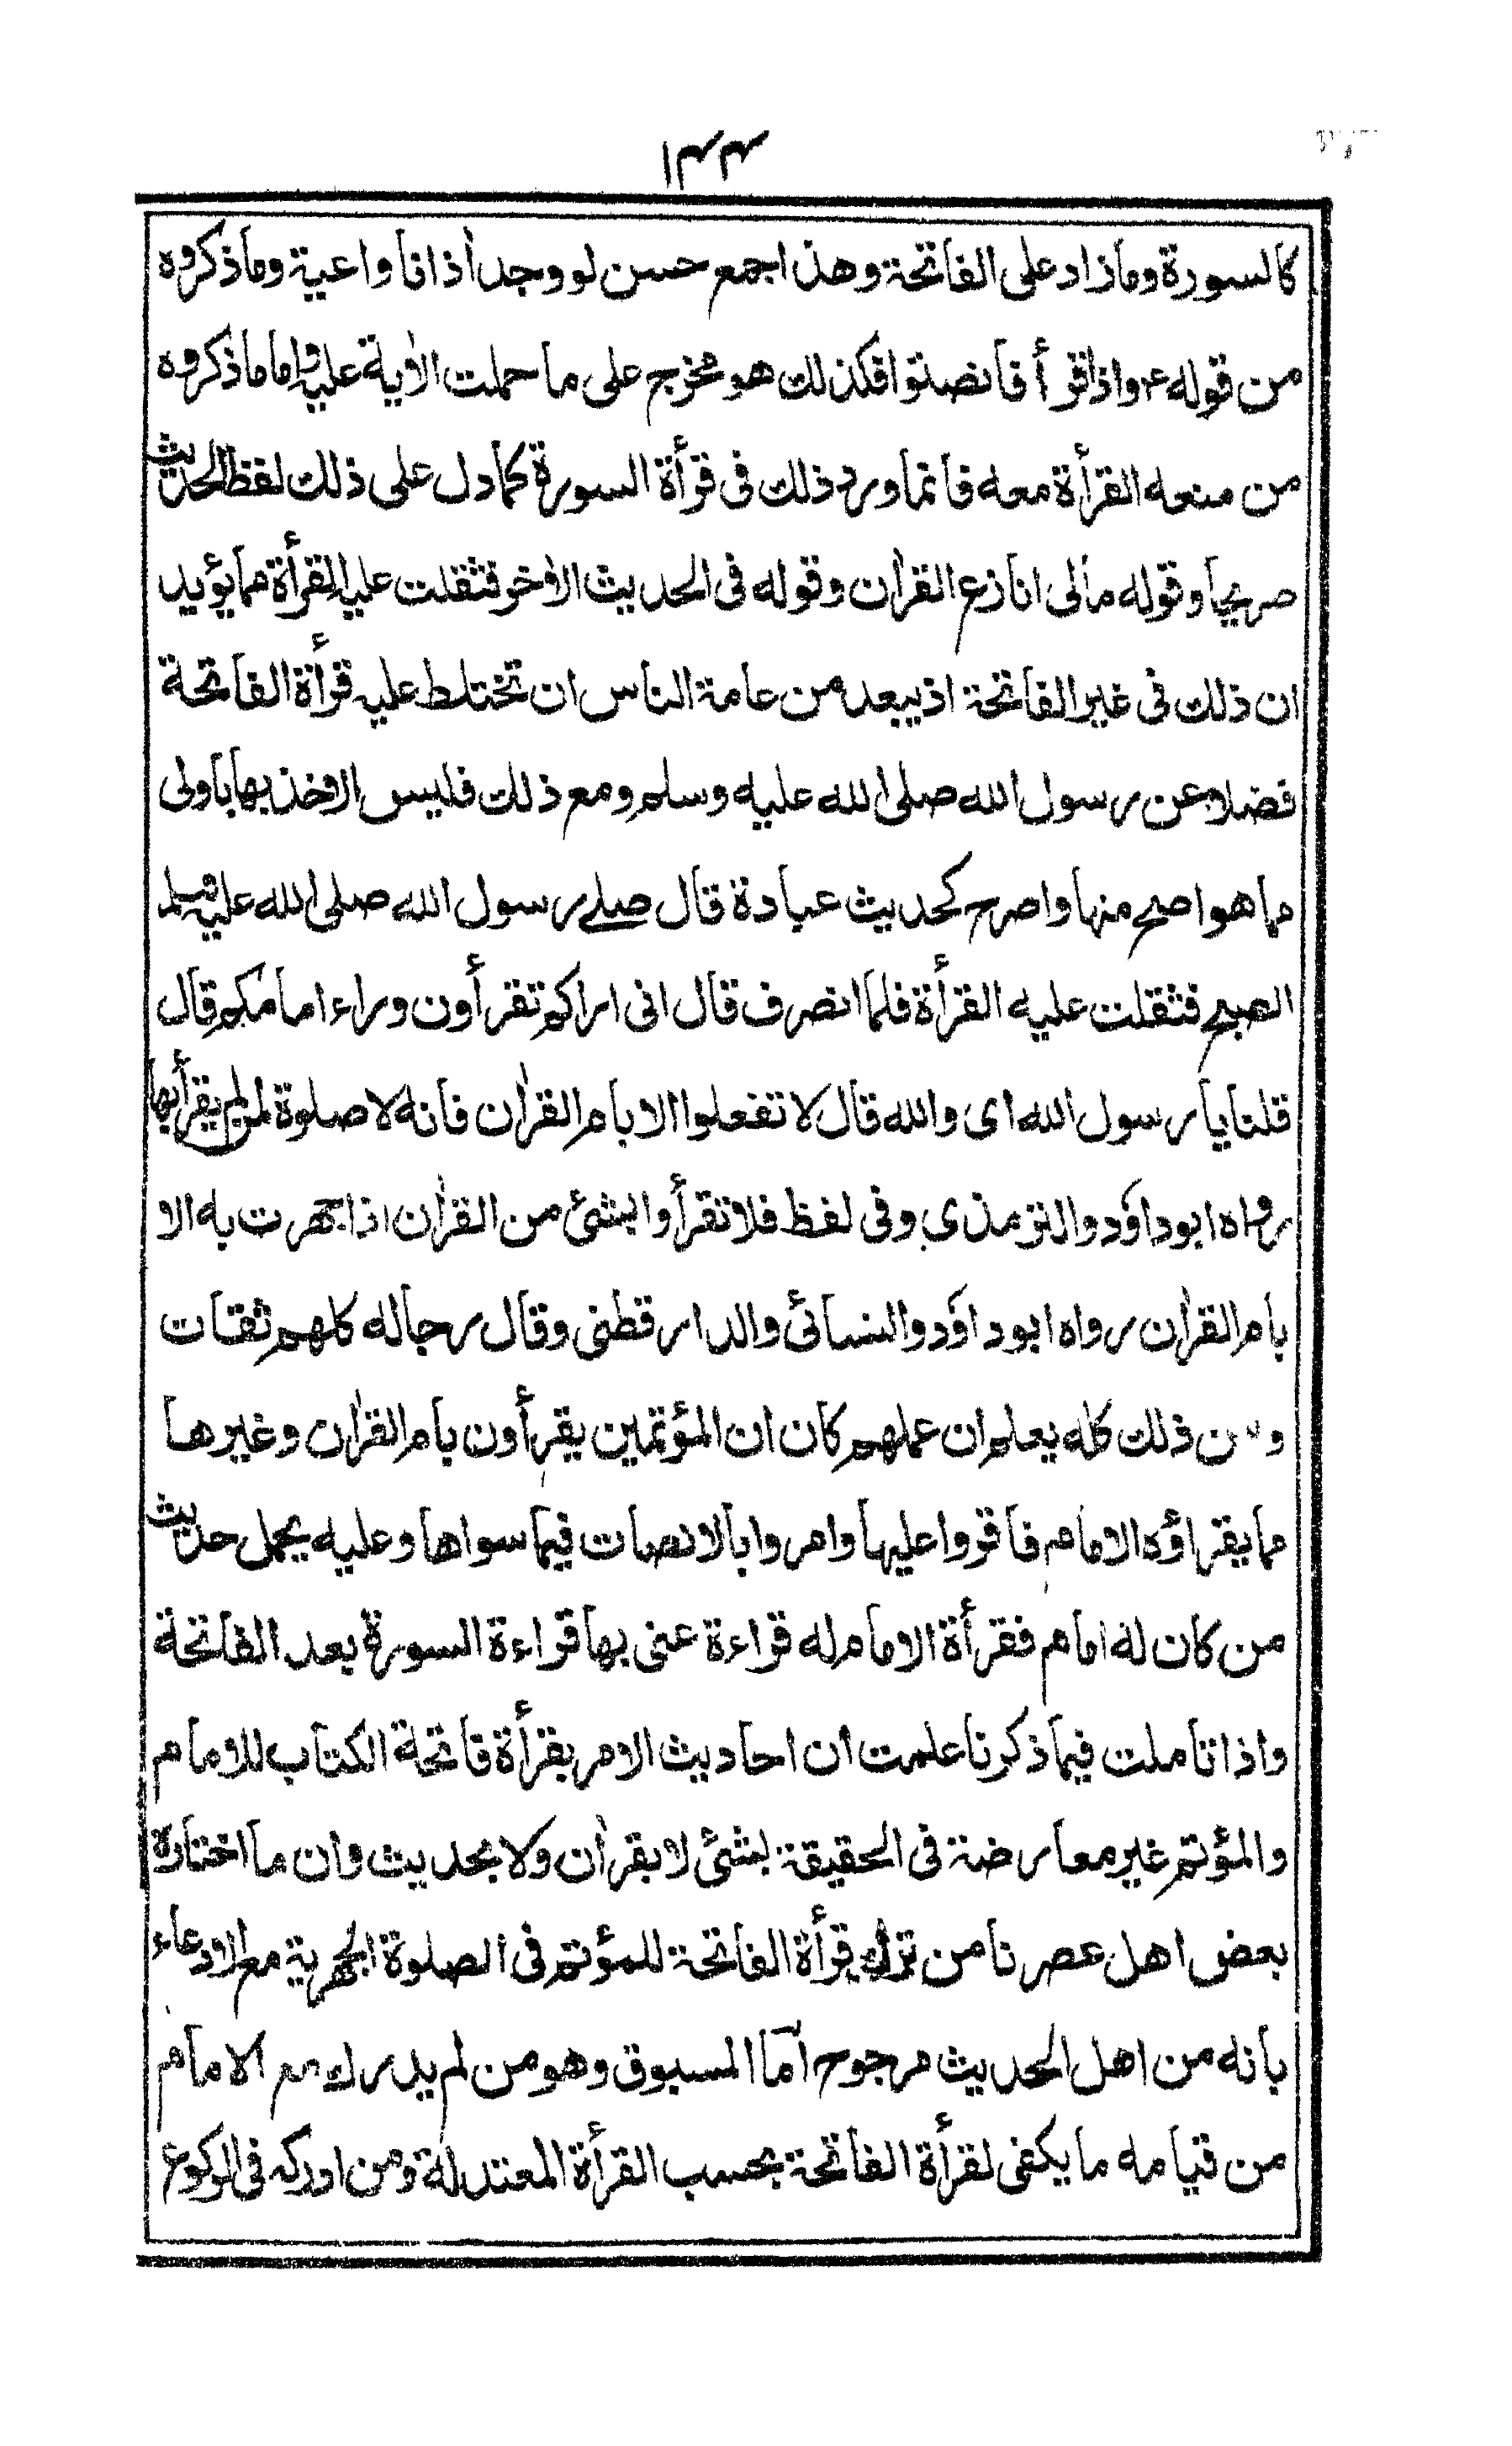 ۱۴۴
كالسورة وما زاد على الفاتحة وهذا جمع حسن لو وجد أذانا واعية وما ذكروه
من قوله ع واذا قرأ فانصتوا فكذلك هو مخرج على ما حملت الاٰية عليه واما ما ذكروه
من منعه القرأة معه فانما ورد ذلك فى قرأة السورة كما دل على ذلك لفظ الحديث
صريحا وقوله مالى انازع القراٰن وقوله فى الحديث الاٰخر فثقلت عليه القرأة مما يؤيد
ان ذلك فى غير الفاتحة اذ يبعد من عامة الناس ان تختلط عليه قرأة الفاتحة
فضلا عن رسول الله صلى الله عليه وسلم ومع ذلك فليس الاخذ بها باولى
مما هو اصح منها واصرح كحديث عبادة قال صلے رسول الله صلى الله عليه وسلم
الصبح فثقلت عليه القرأة فلما انصرف قال انى اراكم تقرأون وراء امامكم قال
قلنا يا رسول الله اى والله قال لا تفعلوا الا بام القراٰن فانه لا صلوة لمن لم يقرأ بها
رواه ابوداؤد والترمذى وفى لفظ فلا تقرأوا بشئ من القراٰن اذا جهرت به الا
بام القراٰن رواه ابوداؤد والنسائى والدارقطنى وقال رجاله كلهم ثقات
ومن ذلك كله يعلم ان عملهم كان ان المؤتمين يقرأون بام القراٰن وغيرها
مما يقراؤه الامام فاقروا عليها وامروا بالانصات فيما سواها وعليه يحمل حديث
من كان له امام فقرأة الامام له قراءة عنى بها قراءة السورة بعد الفاتحة
واذا تاملت فيما ذكرنا علمت ان احاديث الامر بقرأة فاتحة الكتاب للامام
والمؤتم غير معارضة فى الحقيقة بشئ لا بقراٰن ولا بحديث وان ما اختاره
بعض اهل عصرنا من ترك قرأة الفاتحة للمؤتم فى الصلوة الجهرية مع الادعاء
بانه من اهل الحديث مرجوح اما المسبوق وهو من لم يدرك مع الامام
من قيامه ما يكفى لقرأة الفاتحة بحسب القرأة المعتدلة ومن ادركه فى الركوع